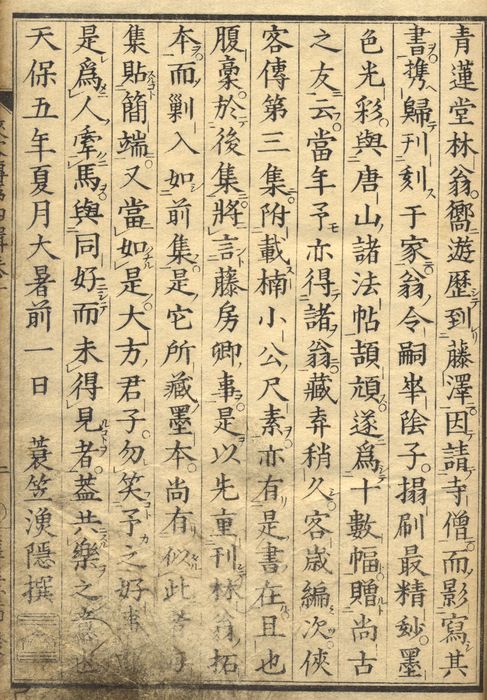 青蓮堂林翁嚮遊歷到藤澤因請寺僧而影寫其
書攜歸刊刻于家翁令嗣峯陰子搨刷最精妙墨
色光彩與唐山諸法帖頡頏遂爲十數幅贈尚古
之友云當年予亦得諸翁藏弆稍久客歲編次俠
客傳第三集附載楠小公尺素亦有是書在且也
腹稾於後集將言藤房卿事是以先重刊林翁拓
本而剿入如前集是它所藏墨本尚有似此者
集貼簡端又當如是大方君子勿笑予之好事
是爲人牽馬與同好而未得見者葢共樂之意也
天保五年夏月大暑前一日 蓑笠漁隱撰